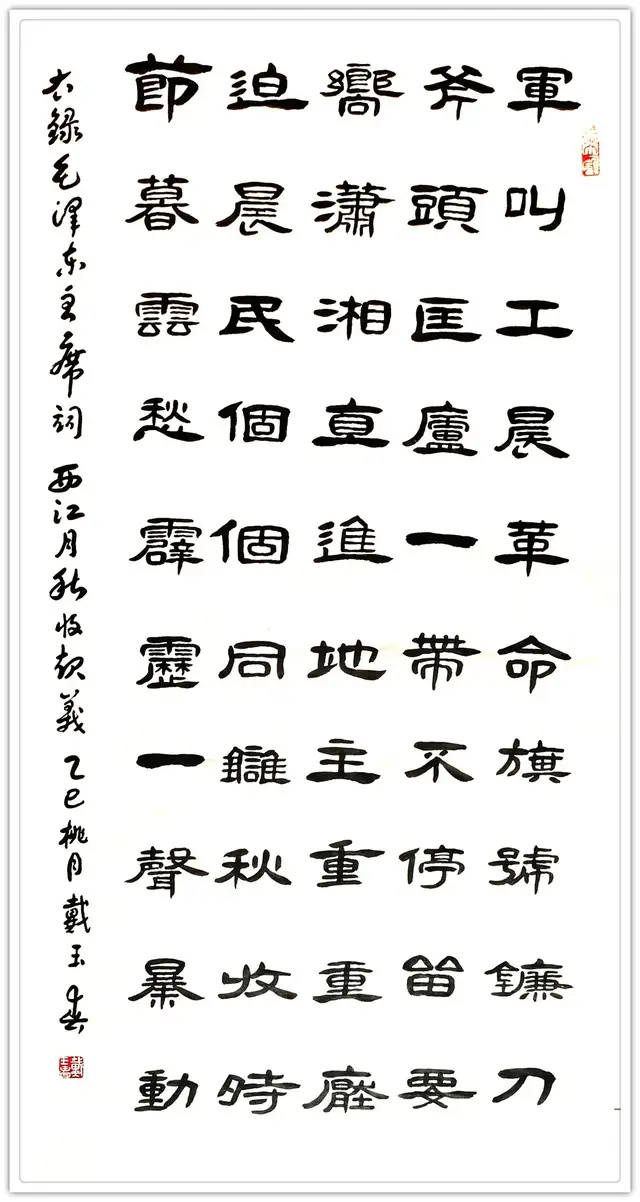 軍叫工晨革命旗號鐮刀
斧頭匡廬一帶不停留要
嚮瀟湘直進地主重重壓
迫晨民個個同讎秋收時
節暮雲愁霹靂一聲暴動
右錄毛澤东主席詞 西江月秋收起義 乙巳桃月戴玉春